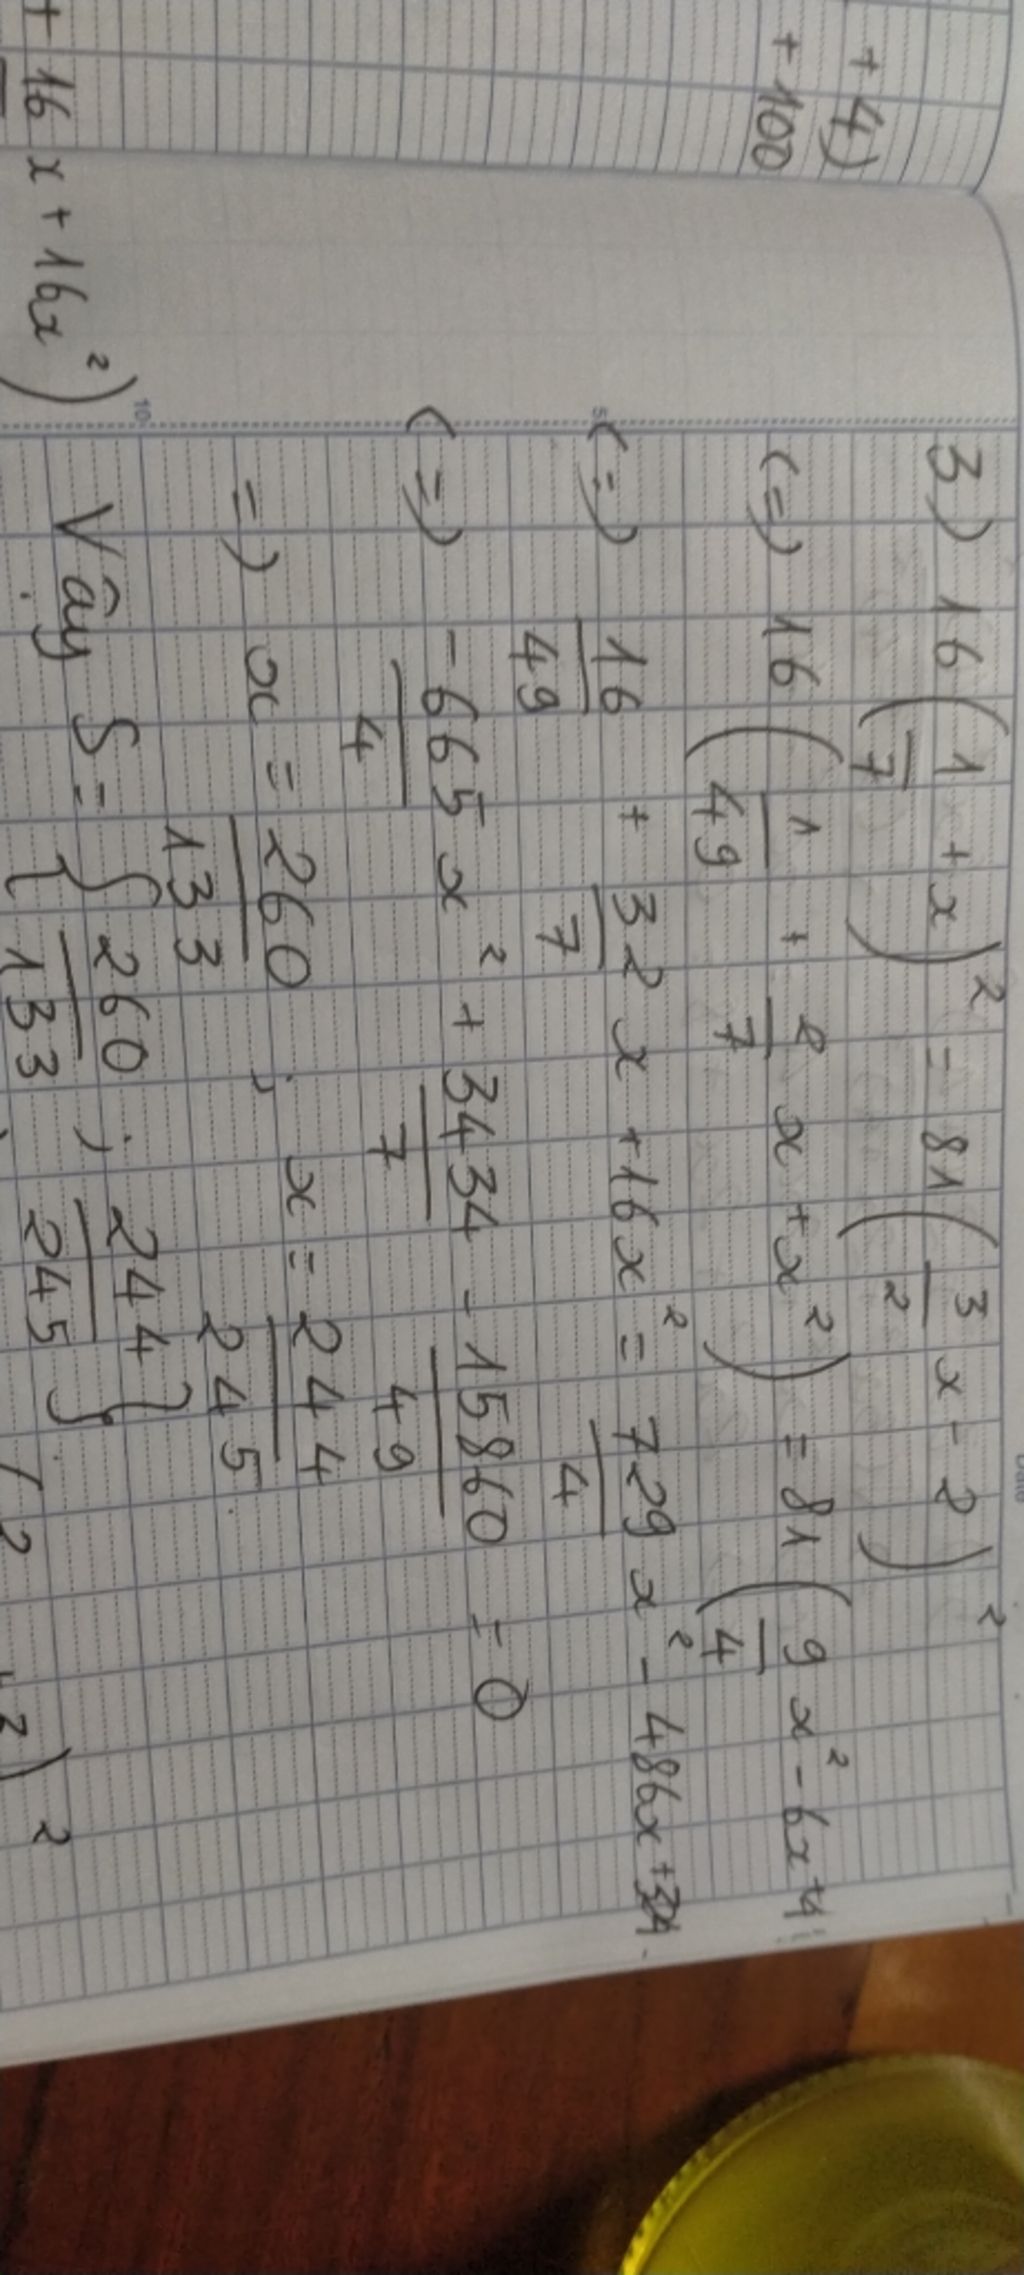 + 4)
+ 100
+ 16x + 16x²)
3) 16(1/7 + x)² = 81(3/2 x - 2)²
(=) 16(1/49 + 2/7 x + x²) = 81(9/4 x² - 6x + 4
(=) 16/49 + 32/7 x + 16x² = 729/4 x² - 486x +
(=) -665/4 x² + 3434/7 - 15860/49 = 0
=) x = 260/133 ; x = 244/245
Vậy S = {260/133 ; 244/245}